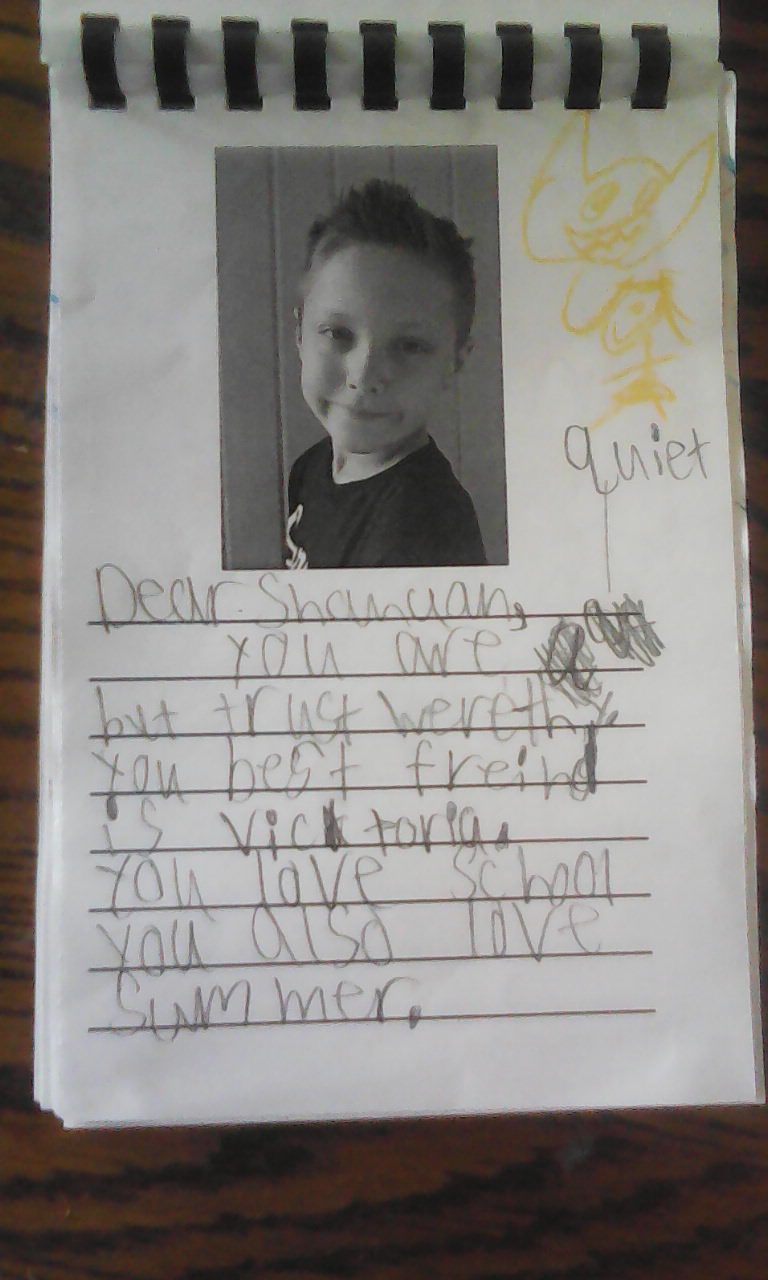 quiet
Dear Shanuan,
you are
but trust werethy
you best freind
is vicktoria.
you love school
you also love
summer.